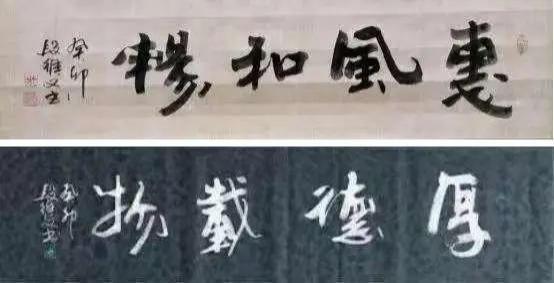 惠風和暢
癸卯
厚德載物
癸卯